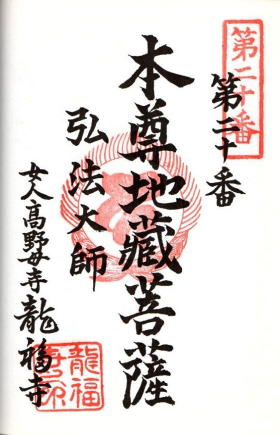 第二十番
第二十番
本尊地藏菩薩
弘法大師
女人高野母寺龍福寺
龍福